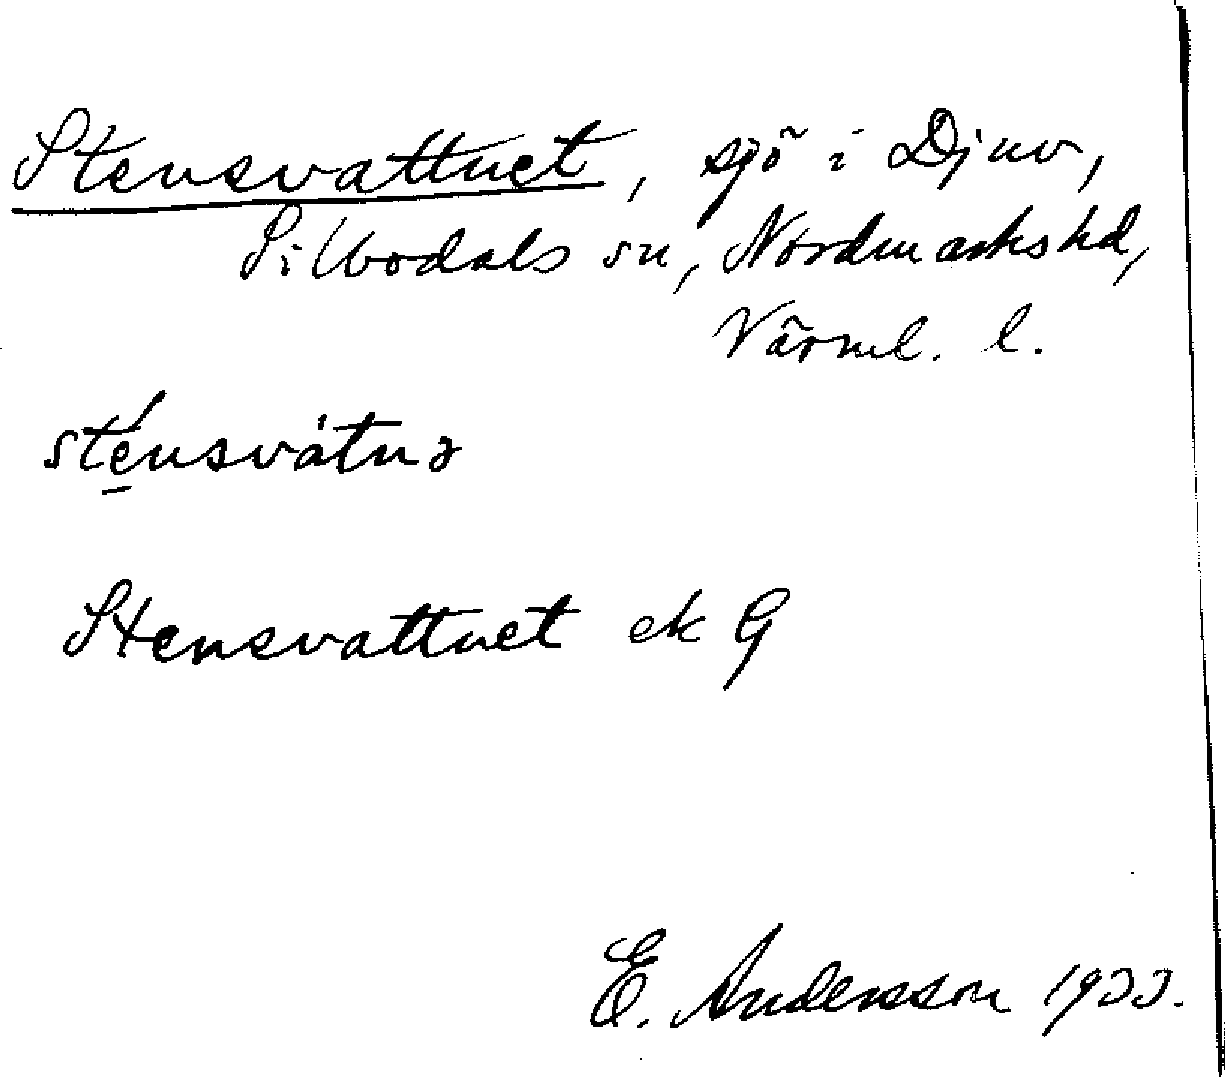 Stensvattnet, sjö i Djuv,
Silbodals sn, Nordmarks hd,
Värml. l.
sténsvàtnə
Stensvattnet ek G
E. Andersson 1933.